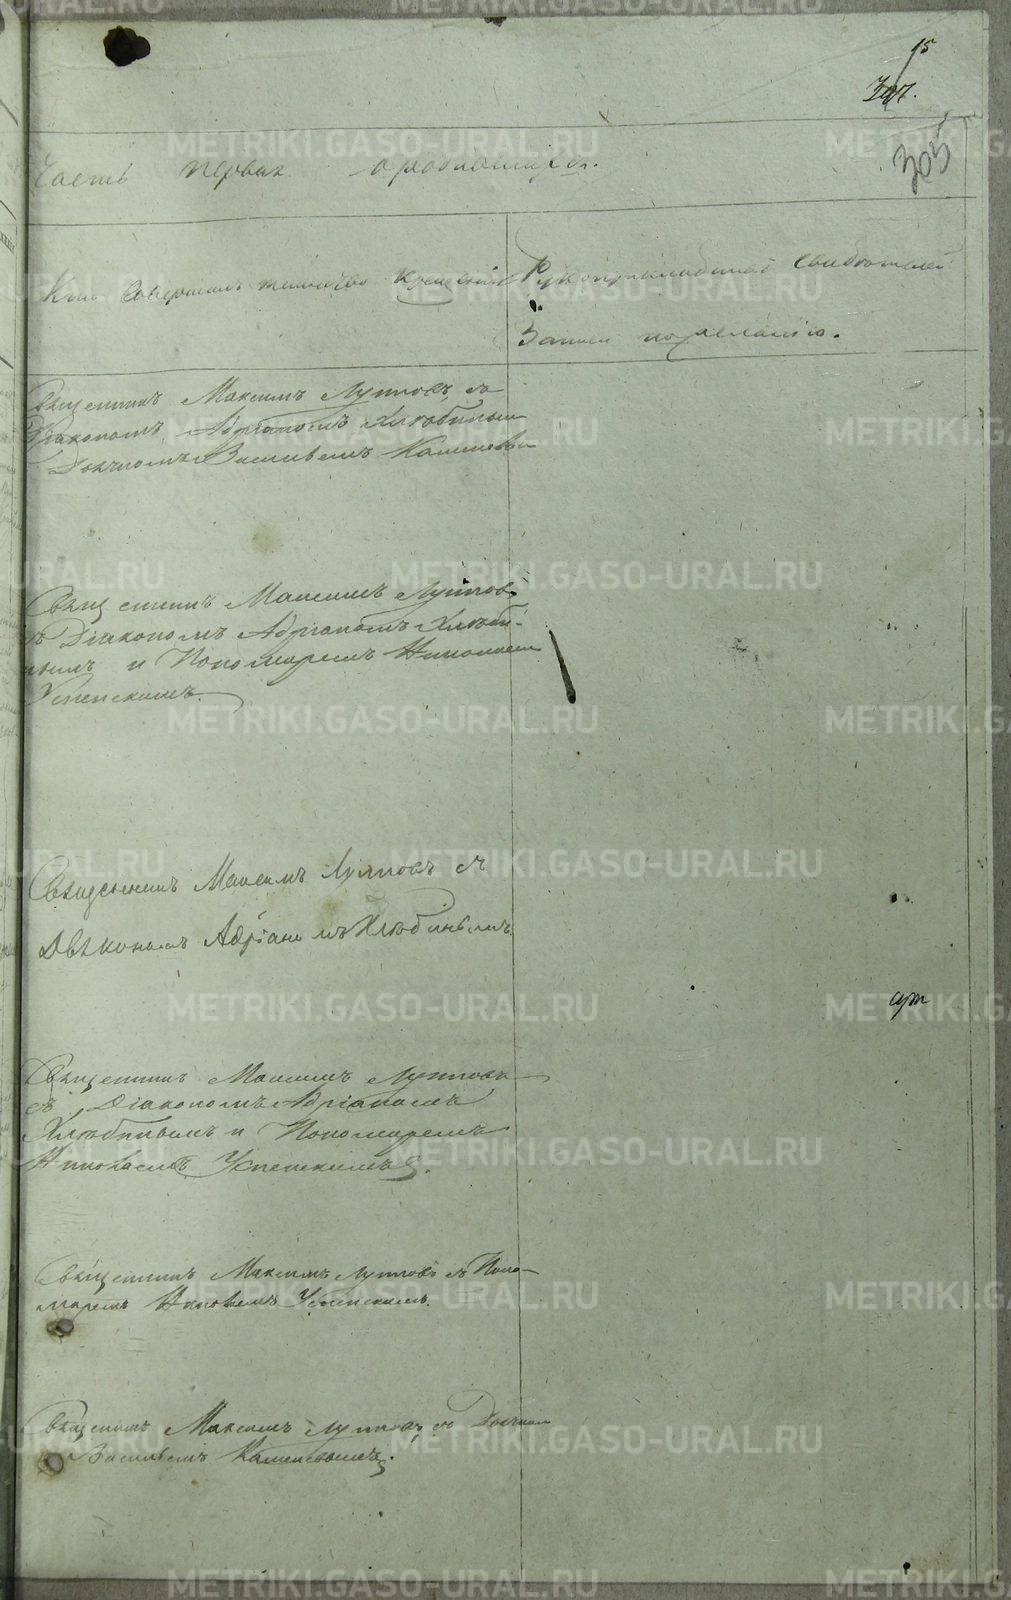 15
305
Часть первая о родившихся.
Кто совершалъ таинство крещенія
Рукоприкладство свидѣтелей
записи по желанію.
Священникъ Максимъ Лупповъ съ
Діакономъ Адріаномъ Хлюбинымъ
Дьячкомъ Василіемъ
Священникъ Максимъ Луппов
съ Діакономъ Адріаномъ Хлюби-
нымъ и Пономаремъ Николаемъ
Успенскимъ.
Священникъ Максимъ Лупповъ съ
Адріаномъ Хлюбинымъ
Священникъ Максимъ Лупповъ
съ Діакономъ Адріаномъ
Хлюбинымъ и Пономаремъ
Николаемъ Успенскимъ.
Священникъ Максимъ Лупповъ съ Поно-
маремъ Успенскимъ.
Священникъ Максимъ Лупповъ съ
Василіемъ
METRIKI.GASO-URAL.RU